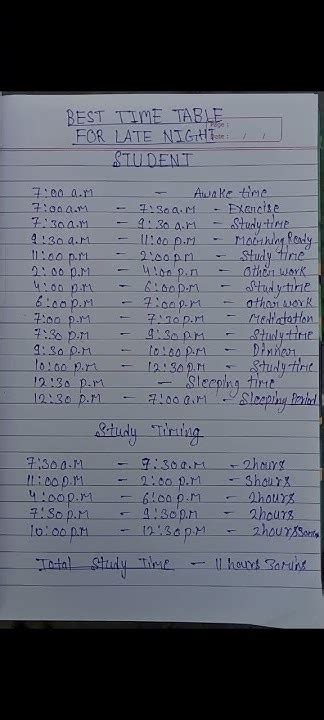 BEST TIME TABLE
Page :
FOR LATE NIGHT
Date : / /
STUDENT
7:00 a.m - Awake time
7:00 a.m - 7:30 a.m - Exercise
7:30 a.m - 9:30 a.m - Study time
9:30 a.m - 11:00 p.m - Morning Ready
11:00 p.m - 2:00 p.m - Study time
2:00 p.m - 4:00 p.m - Other work
4:00 p.m - 6:00 p.m - Study time
6:00 p.m - 7:00 p.m - Other work
7:00 p.m - 7:30 p.m - Meditation
7:30 p.m - 9:30 p.m - Study time
9:30 p.m - 10:00 p.m - Dinner
10:00 p.m - 12:30 p.m - Study time
12:30 p.m - Sleeping time
12:30 p.m - 7:00 a.m - Sleeping Period
Study Timing
7:30 a.m - 9:30 a.m - 2 hours
11:00 p.m - 2:00 p.m - 3 hours
4:00 p.m - 6:00 p.m - 2 hours
7:30 p.m - 9:30 p.m - 2 hours
10:00 p.m - 12:30 p.m - 2 hours 30 mins
Total Study Time - 11 hours 30 mins